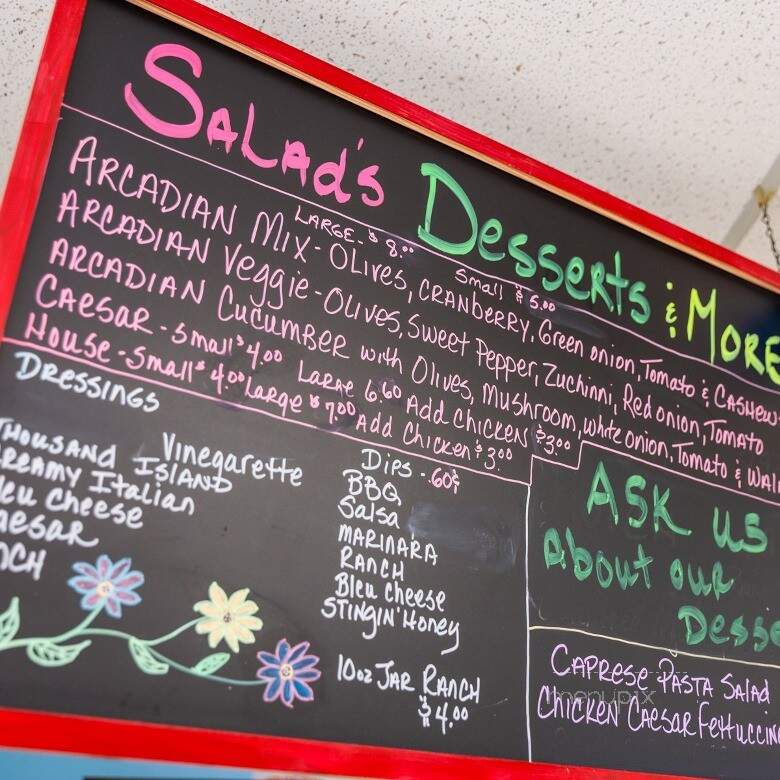 Salad's Desserts & More
Large - $8.00 Small $5.00
Arcadian Mix - Olives, Cranberry, Green onion, Tomato & Cashew
Arcadian Veggie - Olives, Sweet Pepper, Zuchinni, Red onion, Tomato
Arcadian Cucumber with Olives, Mushroom, white onion, Tomato &
Caesar - Small $4.00 Large 6.60 Add Chicken $3.00
House - Small $4.00 Large $7.00 Add Chicken $3.00
Dressings
Vinegarette
Thousand Island
Creamy Italian
Bleu Cheese
Caesar
Dips - .60¢
BBQ
Salsa
Marinara
Ranch
Bleu Cheese
Stingin' Honey
10oz Jar Ranch
$4.00
Ask us
About our
Caprese Pasta Salad
Chicken Caesar
menupix